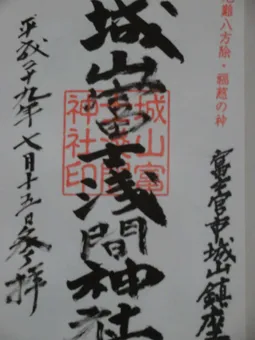 危難八方除・福慈の神
富士宮市城山鎮座
城山富士浅間神社
城山富
士浅間
神社印
平成二十九年七月十五日参拝